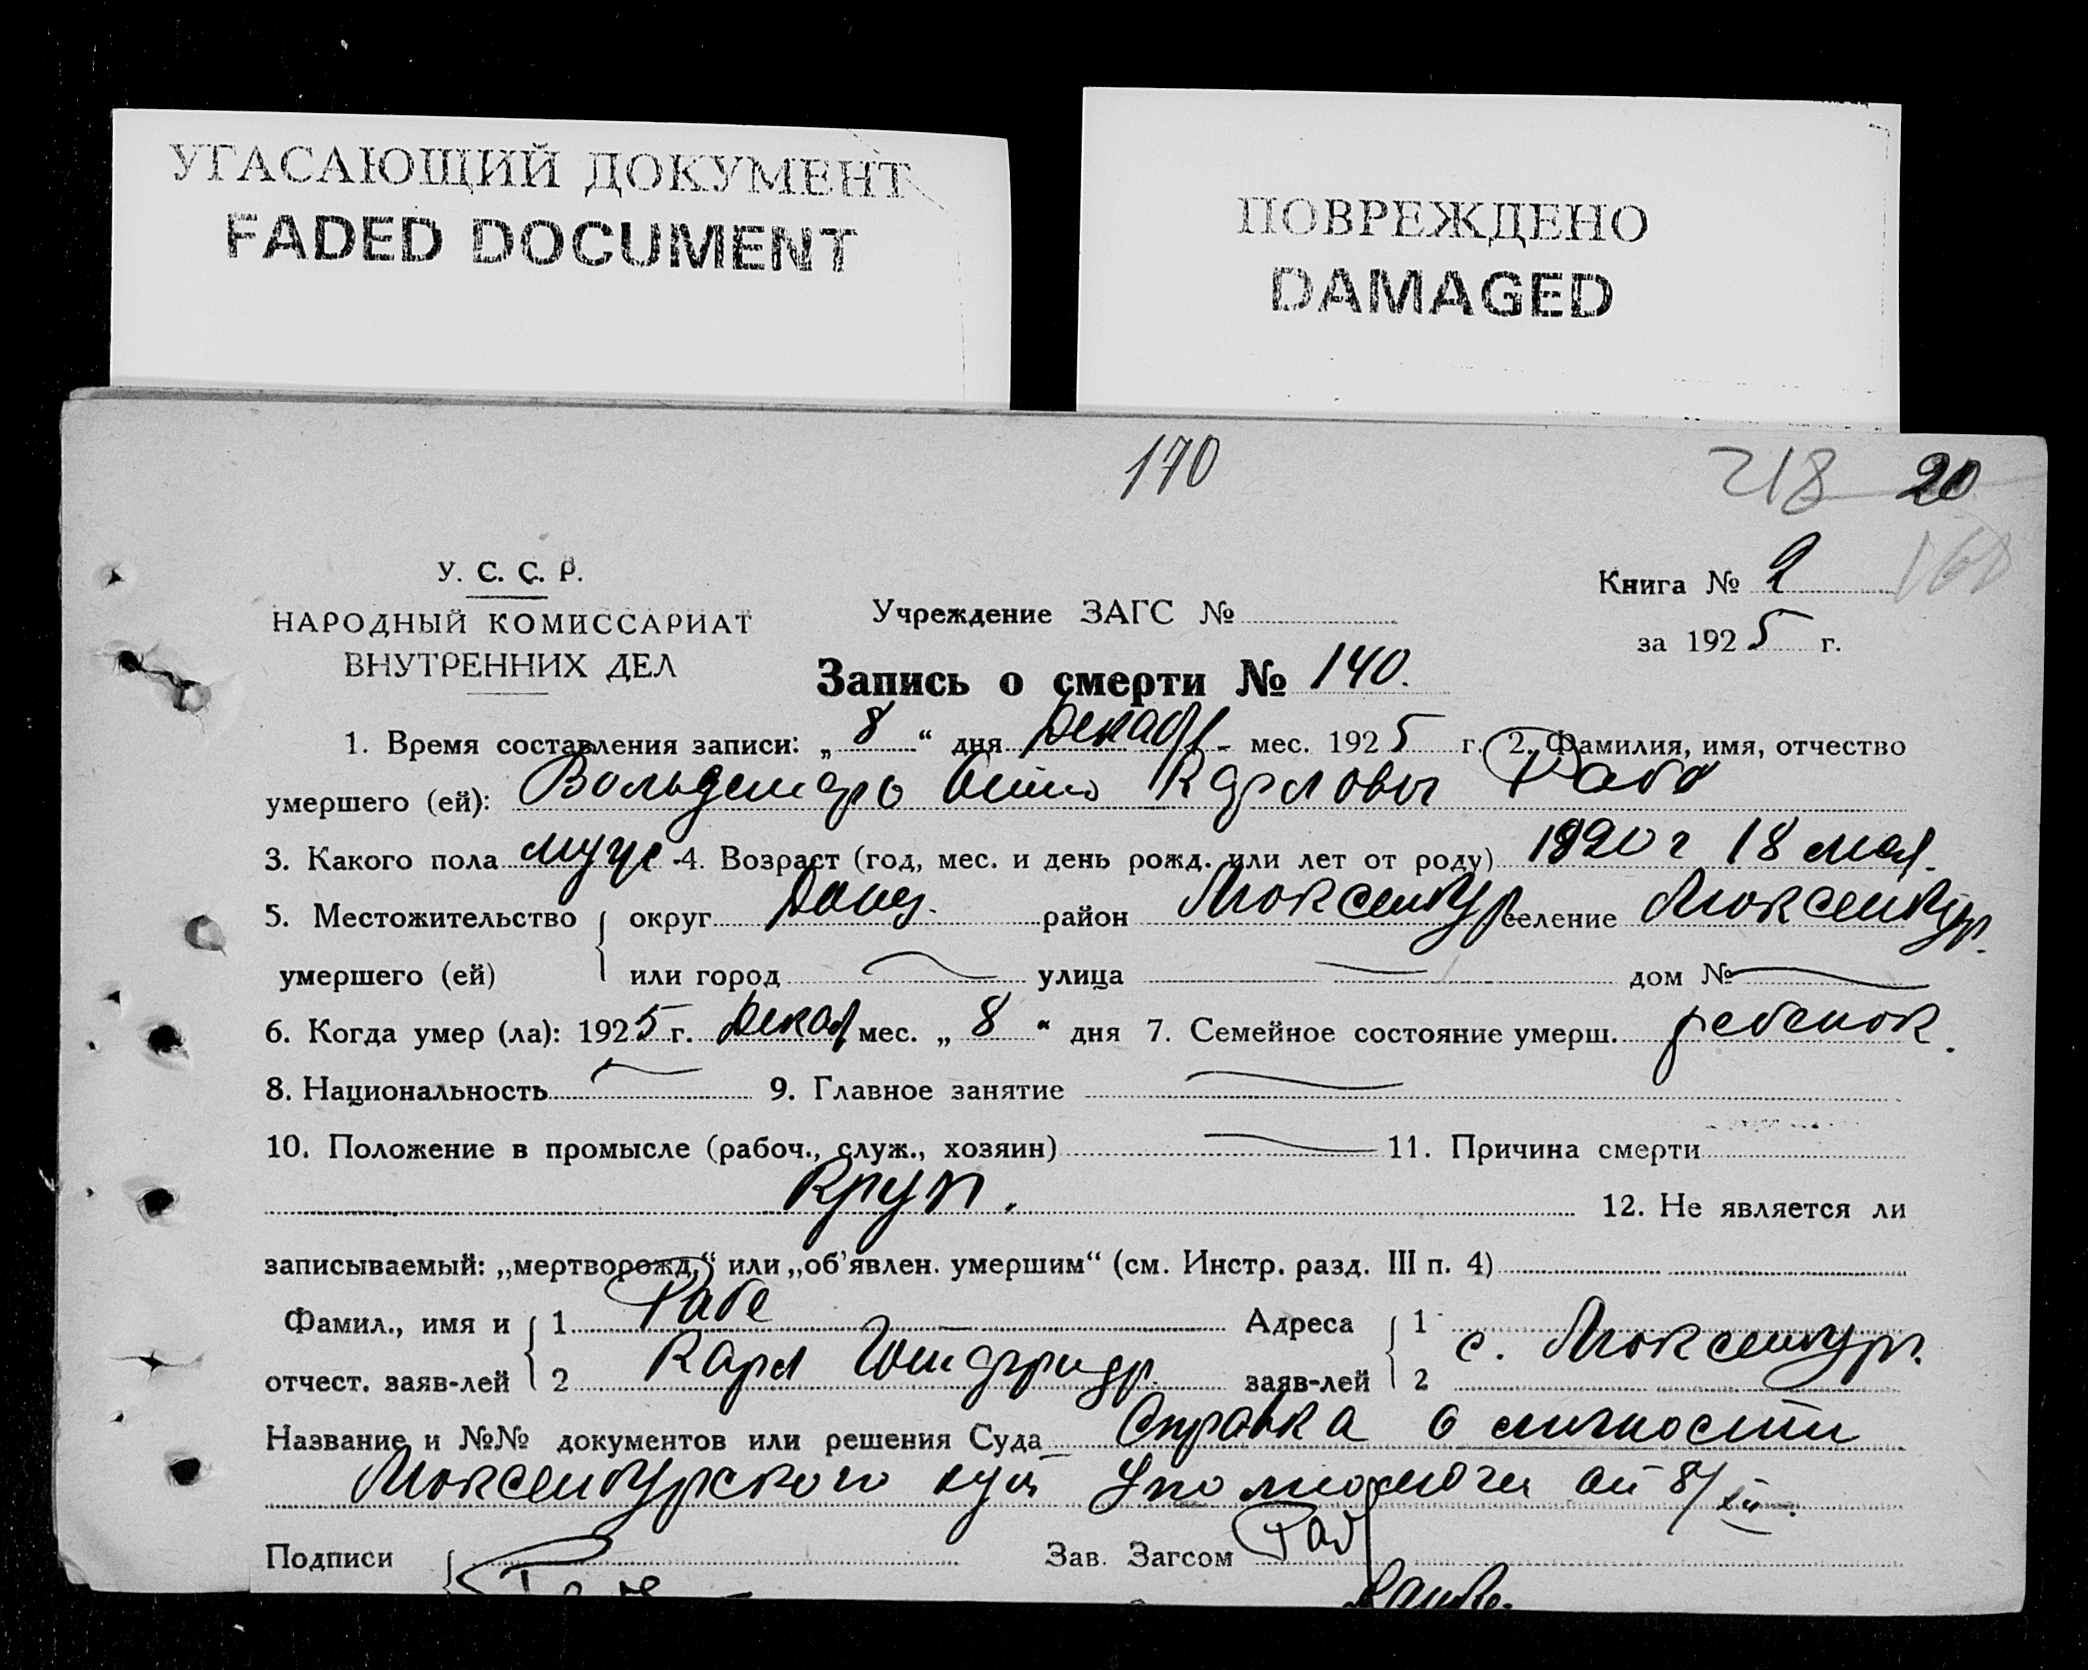 УГАСАЮЩИЙ ДОКУМЕНТ
FADED DOCUMENT
ПОВРЕЖДЕНО
DAMAGED
170
218 20
У. С. С. Р.
НАРОДНЫЙ КОМИССАРИАТ
ВНУТРЕННИХ ДЕЛ
Учреждение ЗАГС №
Книга № 2
за 1925 г.
Запись о смерти № 140.
1. Время составления записи: „8“ дня Декаб мес. 1925 г. 2. Фамилия, имя, отчество
умершего (ей): Вольдемарь Отто Карловы Рабе
3. Какого пола муж 4. Возраст (год, мес. и день рожд. или лет от роду) 1920 г 18 мая.
5. Местожительство округ Донец. район Люксембур селение Люксембур.
умершего (ей) или город улица дом №
6. Когда умер (ла): 1925 г. Декаб мес. „8“ дня 7. Семейное состояние умерш. ребенок.
8. Национальность 9. Главное занятие
10. Положение в промысле (рабоч., служ., хозяин) 11. Причина смерти
Круп. 12. Не является ли
записываемый: „мертворожд.“ или „об'явлен. умершим“ (см. Инстр. разд. III п. 4)
Фамил., имя и 1 Рабе Адреса 1 с. Люксембур.
отчест. заяв-лей 2 Карл заяв-лей 2
Название и №№ документов или решения Суда Справка о личности
Люксембурского от 8/XII.
Подписи Рабе Зав. Загсом Раб